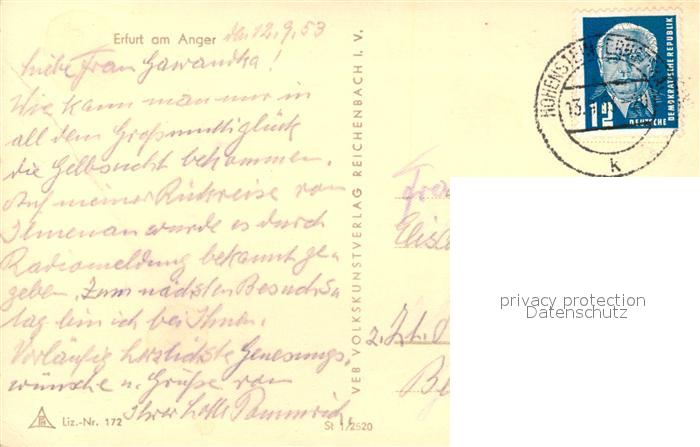 Erfurt am Anger den 12.9.53
Liebe Frau Gawandka!
Wie kann man nur in
all dem Großmuttiglück
die Gelbsucht bekommen.
Auf meiner Rückreise von
Ilmenau wurde es durch
Radiomeldung bekannt ge-
geben. Zum nächsten Besuchs-
tag bin ich bei Ihnen.
Vorläufig herzlichste Genesungs-
wünsche u. Grüße von
Ihrer Lotte Pommrich
Liz.-Nr. 172
St 1/2520
VEB VOLKSKUNSTVERLAG REICHENBACH I. V.
HOHENSTEIN-ER
13.
k
12
DEUTSCHE
DEMOKRATISCHE REPUBLIK
Frau
Elis
z. Zt.
privacy protection
Datenschutz